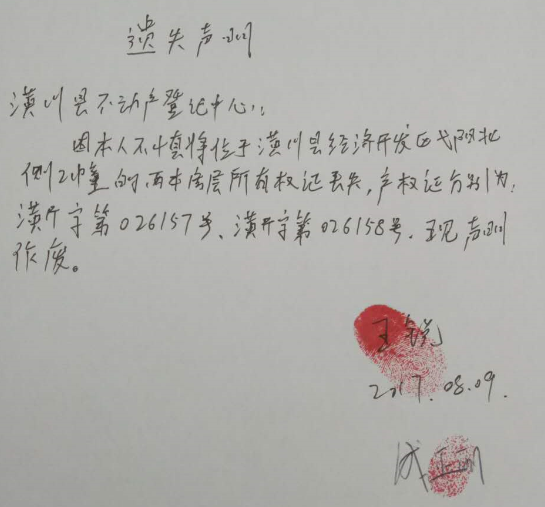 遗失声明
潢川县不动产登记中心:
因本人不慎将位于潢川县经济开发区弋阳北
侧2幢的两本房屋所有权证丢失,产权证分别为:
潢开字第026157号、潢开字第026158号.现声明
作废。
王锐
2017.08.09.